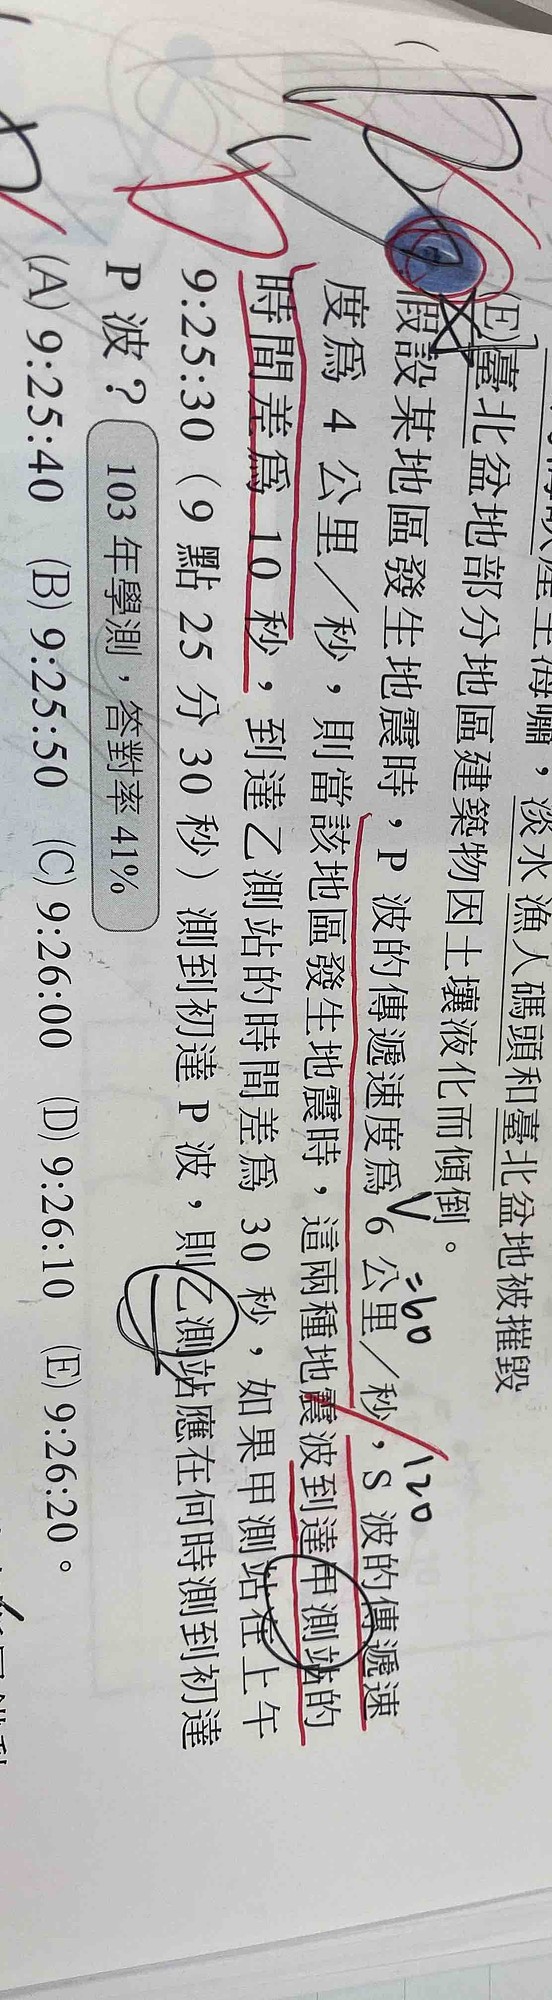 產生海嘯，淡水漁人碼頭和臺北盆地被摧毀
(E)臺北盆地部分地區建築物因土壤液化而傾倒。
假設某地區發生地震時，P 波的傳遞速度為 6 公里／秒，S 波的傳遞速
=60
120
度為 4 公里／秒，則當該地區發生地震時，這兩種地震波到達甲測站的
時間差為 10 秒，到達乙測站的時間差為 30 秒，如果甲測站在上午
9:25:30（9 點 25 分 30 秒）測到初達 P 波，則乙測站應在何時測到初達
P 波？ 103 年學測，答對率 41%
(A) 9:25:40 (B) 9:25:50 (C) 9:26:00 (D) 9:26:10 (E) 9:26:20。